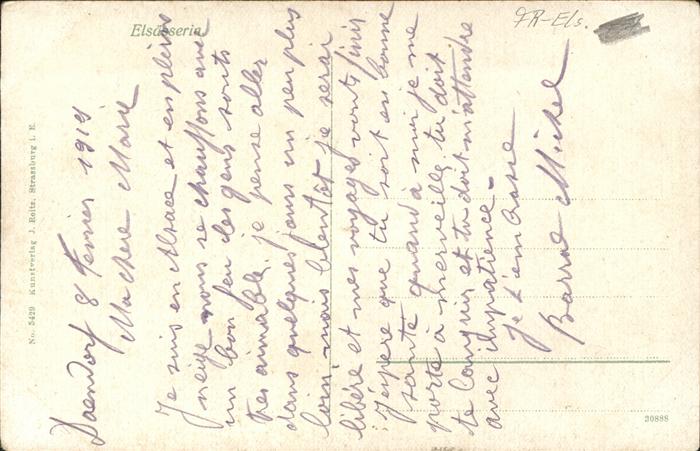 Elsässerin.
FR-Els.
No. 5429 Kunstverlag J. Reitz, Strassburg i. E.
30888
8 Fevrier 1919
Ma chere Marie
Je suis en Alsace et en pleine
neige nous se chauffons au
un bon feu des gens sont
tres aimable, je pense aller
dans quelques jours un peu plus
loin mais bientôt je serai
libéré et mes voyages vont finir
J'éspére que tu soit en bonne
santé quand à moi je me
porte à merveille, tu doit
te languir et tu doit m'attendre
avec impatience -
Je t'embrasse
Michel